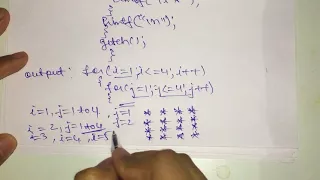 printf("*");
}
printf("\n");
}
getch();
}
output: for(i=1;i<=4;i++)
{
for(j=1;j<=4;j++)
i=1, j=1 to 4, j=1 * * * *
i=2, j=1 to 4 j=2 * * * *
i=3, i=4, i=5 * * * *
* * * *